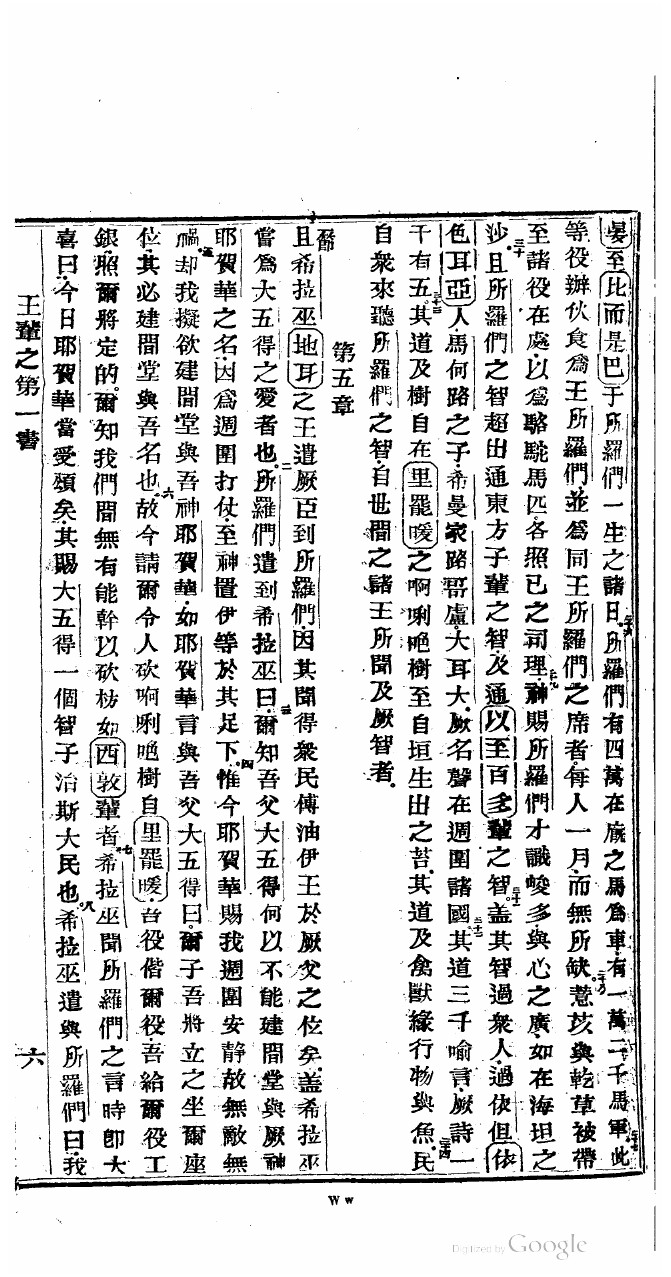 晏至比而是巴于所羅們一生之諸日所羅們有四萬在廐之馬爲車有一萬二千馬軍此
等役辦伙食爲王所羅們並爲同王所羅們之席者每人一月而無所缺薏苡與乾草被帶
至諸役在處以爲駱駝馬匹各照已之司理神賜所羅們才識峻多與心之廣如在海坦之
沙且所羅們之智超出通東方子輩之智及通以至百多輩之智蓋其智過衆人過依但依
色耳亞人馬何路之子希曼家路哥盧大耳大厥名聲在週圍諸國其道三千喻言厥詩一
千有五其道及樹自在里罷暖之啊唎唵樹至自垣生出之苔其道及禽獸緣行物與魚民
自衆來聽所羅們之智自世間之諸王所聞及厥智者
第五章
且希拉巫地耳之王遣厥臣到所羅們因其聞得衆民傅油伊王於厥父之位矣蓋希拉巫
嘗爲大五得之愛者也所羅們遣到希拉巫曰爾知吾父大五得何以不能建間堂與厥神
耶賀華之名因爲週圍打仗至神置伊等於其足下惟今耶賀華賜我週圍安静故無敵無
禍却我擬欲建間堂與吾神耶賀華如耶賀華言與吾父大五得曰爾子吾將立之坐爾座
位其必建間堂與吾名也故今請爾令人砍啊唎唵樹自里罷暖吾役偕爾役吾給爾役工
銀照爾將定的爾知我們間無有能幹以砍枋如西敦輩者希拉巫聞所羅們之言時卽大
喜曰今日耶賀華當受頌矣其賜大五得一個智子治斯大民也希拉巫遣與所羅們曰我
王輩之第一書 六
Ww
Digitized by Google